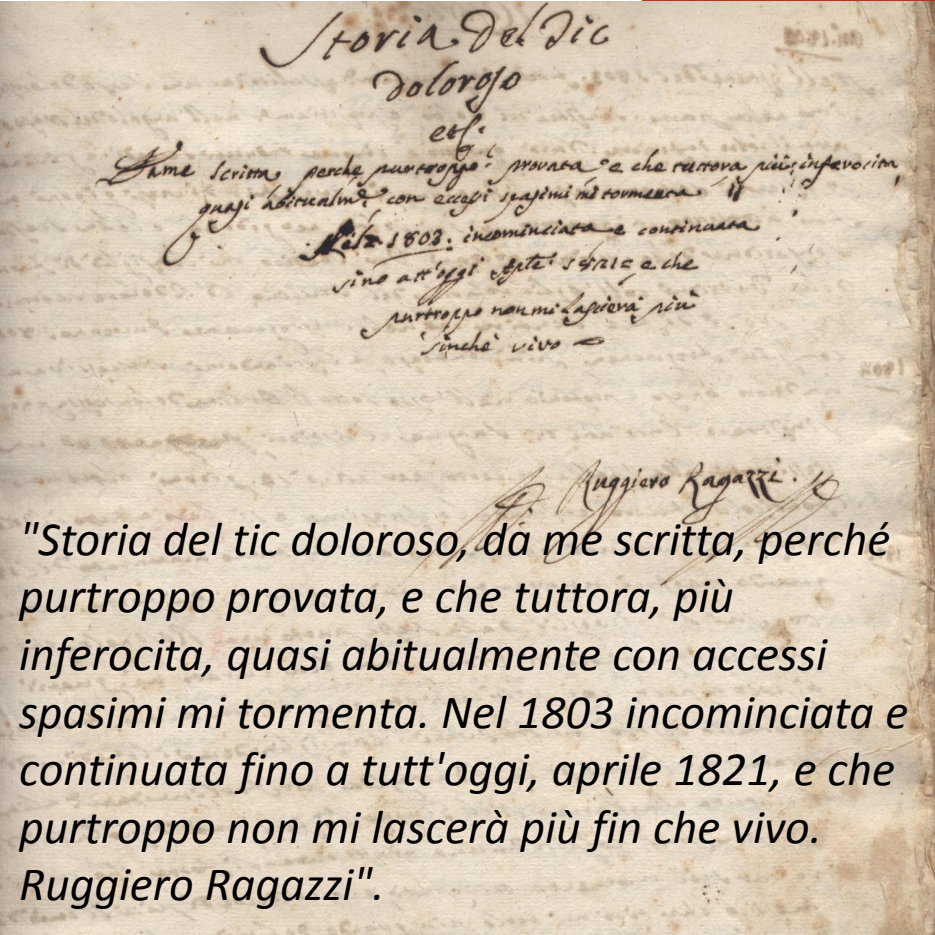 Storia del Tic
doloroso
etc.
Da me scritta perche purtroppo provata e che tuttora più inferocita
quasi abitualmte con eccessi spasimi mi tormenta
Nel 1803. incominciata e continuata
sino att'oggi 1821 e che
purtroppo non mi lascierà più
sinchè vivo
Ruggiero Ragazzi.
"Storia del tic doloroso, da me scritta, perché
purtroppo provata, e che tuttora, più
inferocita, quasi abitualmente con accessi
spasimi mi tormenta. Nel 1803 incominciata e
continuata fino a tutt'oggi, aprile 1821, e che
purtroppo non mi lascerà più fin che vivo.
Ruggiero Ragazzi".